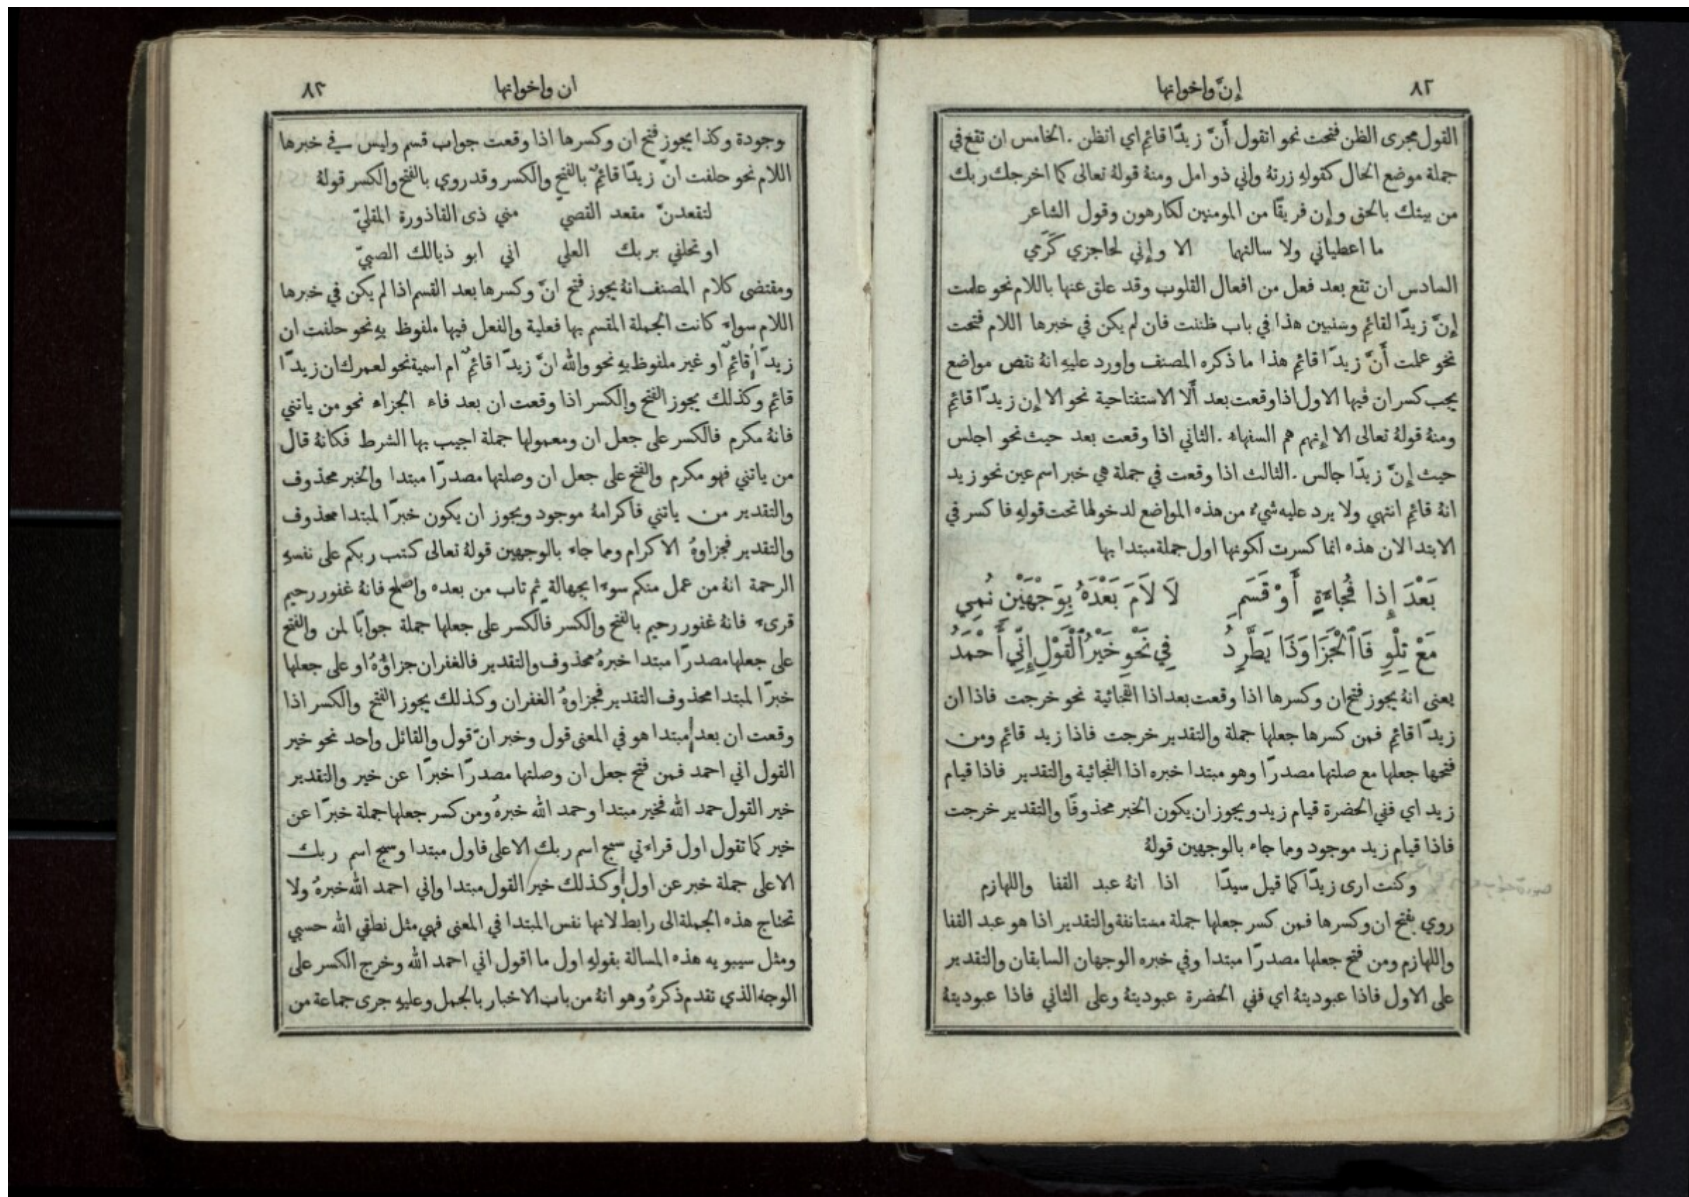 ٨٢
إنّ واخواتها
القول مجرى الظن فتحت نحو اتقول أَنّ زيدًا قائم اي اتظن . الخامس ان تقع في
جملة موضع الحال كقولهِ زرتهُ واني ذو امل ومنهُ قولهُ تعالى كما اخرجك ربك
من بيتك بالحق وإن فريقًا من المومنين لكارهون وقول الشاعر
ما اعطياني ولا سالتهما الا وإني لحاجزي كَرَمي
السادس ان تقع بعد فعل من افعال القلوب وقد علق عنها باللام نحو علمت
إنّ زيدًا لقائم وسنبين هذا في باب ظننت فان لم يكن في خبرها اللام فتحت
نحو علمت أَنّ زيدًا قائم هذا ما ذكره المصنف واورد عليهِ انهُ نقص مواضع
يجب كسر ان فيها الاول اذا وقعت بعد أَلا الاستفتاحية نحو الا إن زيدًا قائم
ومنهُ قولهُ تعالى الا إنهم هم السفهاء . الثاني اذا وقعت بعد حيث نحو اجلس
حيث إنّ زيدًا جالس . الثالث اذا وقعت في جملة هي خبر اسم عين نحو زيد
انهُ قائم انتهى ولا يرد عليه شيء من هذه المواضع لدخولها تحت قولهِ فاكسر في
الابتدا لان هذه انما كسرت لكونها اول جملة مبتدا بها
بَعْدَ إِذا فُجاءَةٍ أَوْ قَسَمِ لَا لَامَ بَعْدَهُ بِوَجْهَيْنِ نُمِي
مَعْ تِلْوِ فَا ٱلْجَزَا وَذَا يَطَّرِدُ فِي نَحْوِ خَيْرُ ٱلْقَوْلِ إِنِّي أَحْمَدُ
يعنى انهُ يجوز فتح ان وكسرها اذا وقعت بعد اذا الفجائية نحو خرجت فاذا ان
زيدًا قائم فمن كسرها جعلها جملة والتقدير خرجت فاذا زيد قائم ومن
فتحها جعلها مع صلتها مصدرًا وهو مبتدا خبره اذا الفجائية والتقدير فاذا قيام
زيد اي ففي الحضرة قيام زيد ويجوز ان يكون الخبر محذوفًا والتقدير خرجت
فاذا قيام زيد موجود وما جاء بالوجهين قولهُ
وكنت ارى زيدًا كما قيل سيدًا اذا انهُ عبد القفا واللهازم
روي بفتح ان وكسرها فمن كسر جعلها جملة مستانفة والتقدير اذا هو عبد القفا
واللهازم ومن فتح جعلها مصدرًا مبتدا وفي خبره الوجهان السابقان والتقدير
على الاول فاذا عبوديتهُ اي ففي الحضرة عبوديتهُ وعلى الثاني فاذا عبوديتهُ
ان واخواتها
٨٣
وجودة وكذا يجوز فتح ان وكسرها اذا وقعت جواب قسم وليس في خبرها
اللام نحو حلفت انّ زيدًا قائمٌ بالفتح والكسر وقد روي بالفتح والكسر قولهُ
لتقعدنّ مقعد القصي مني ذى القاذورة المقليّ
او تحلفي بربك العلي اني ابو ذيالك الصبيّ
ومقتضى كلام المصنف انهُ يجوز فتح انّ وكسرها بعد القسم اذا لم يكن في خبرها
اللام سواء كانت الجملة المقسم بها فعلية والفعل فيها ملفوظ بهِ نحو حلفت ان
زيدًا قائمٌ او غير ملفوظ بهِ نحو والله انّ زيدًا قائمٌ ام اسمية نحو لعمرك ان زيدًا
قائم وكذلك يجوز الفتح والكسر اذا وقعت ان بعد فاء الجزاء نحو من ياتني
فانهُ مكرم فالكسر على جعل ان ومعمولها جملة اجيب بها الشرط فكانهُ قال
من ياتني فهو مكرم والفتح على جعل ان وصلتها مصدرًا مبتدا والخبر محذوف
والتقدير من ياتني فاكرامهُ موجود ويجوز ان يكون خبرًا لمبتدا محذوف
والتقدير فجزاوهُ الاكرام وما جاء بالوجهين قولهُ تعالى كتب ربكم على نفسهِ
الرحمة انهُ من عمل منكم سوءا بجهالة ثم تاب من بعده واصلح فانهُ غفور رحيم
قرىء فانهُ غفور رحيم بالفتح والكسر فالكسر على جعلها جملة جوابًا لمن والفتح
على جعلها مصدرًا مبتدا خبرهُ محذوف والتقدير فالغفران جزاؤهُ او على جعلها
خبرًا لمبتدا محذوف التقدير فجزاوهُ الغفران وكذلك يجوز الفتح والكسر اذا
وقعت ان بعد مبتدا هو في المعنى قول وخبر انّ قول والقائل واحد نحو خير
القول اني احمد فمن فتح جعل ان وصلتها مصدرًا خبرًا عن خير والتقدير
خير القول حمد الله فخير مبتدا وحمد الله خبرهُ ومن كسر جعلها جملة خبرًا عن
خير كما تقول اول قراءتي سبح اسم ربك الاعلى فاول مبتدا وسبح اسم ربك
الاعلى جملة خبر عن اول وكذلك خير القول مبتدا واني احمد الله خبرهُ ولا
تحتاج هذه الجملة الى رابط لانها نفس المبتدا في المعنى فهي مثل نطقي الله حسبي
ومثل سيبويه هذه المسالة بقولهِ اول ما اقول اني احمد الله وخرج الكسر على
الوجه الذي تقدم ذكرهُ وهو انهُ من باب الاخبار بالجمل وعليهِ جرى جماعة من